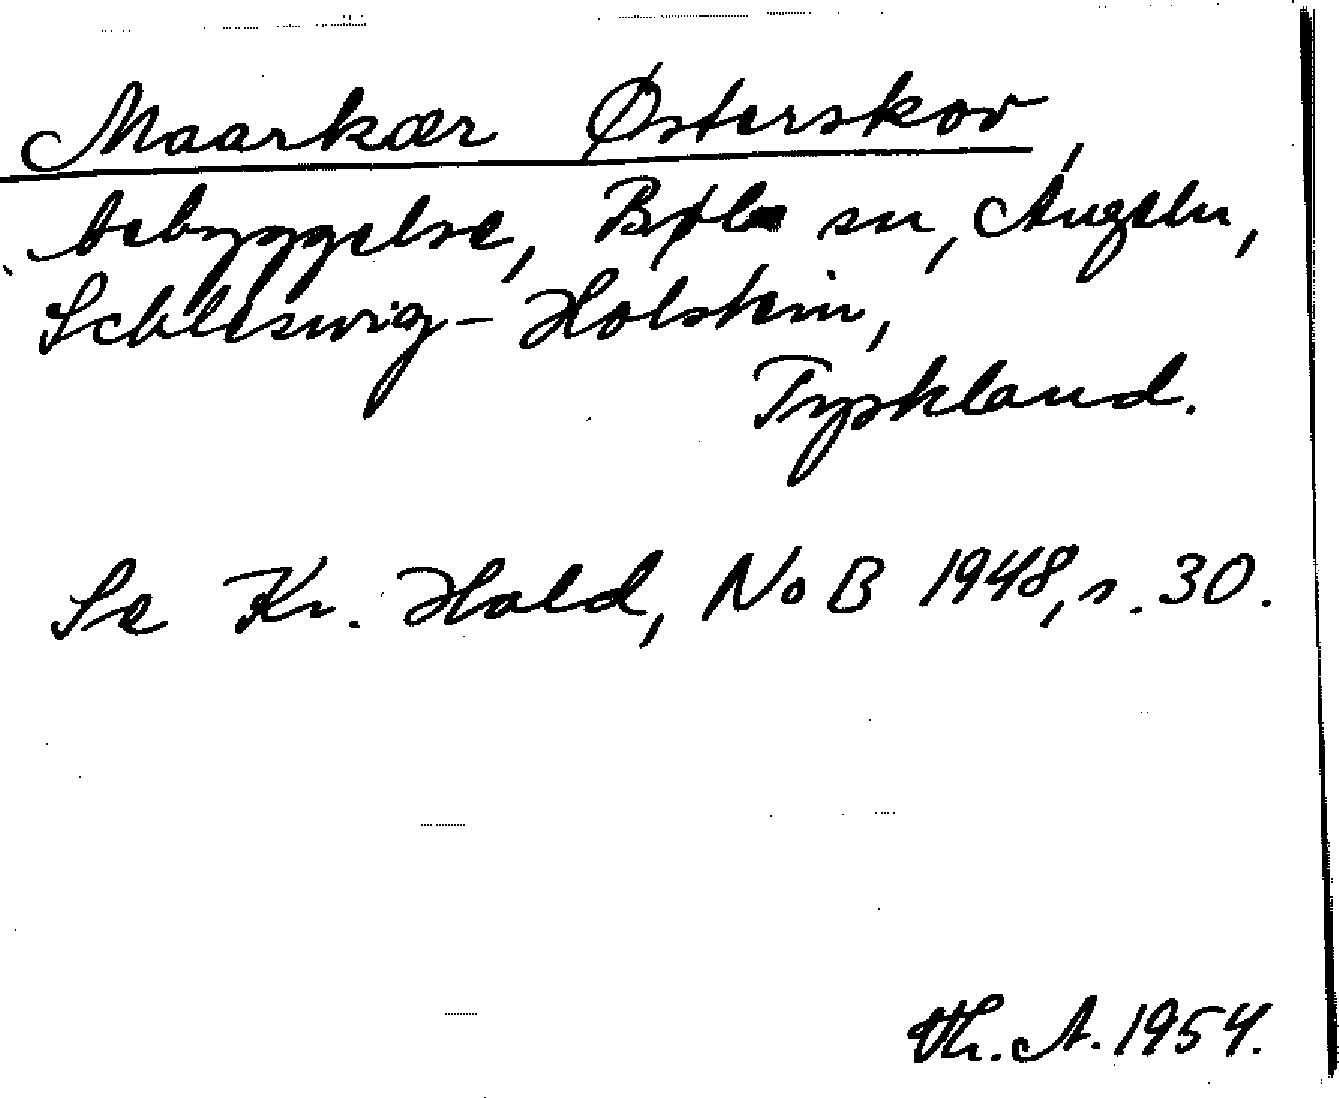 Maarkær Østerskov,
bebyggelse, Bøl sn, Angeln,
Schleswig-Holstein,
Tyskland.
Se Kr. Hald, NoB 1948, s. 30.
Th. A. 1954.